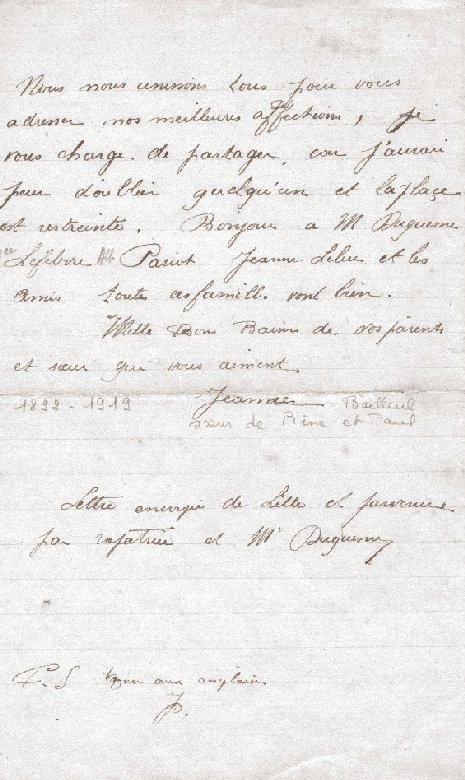 Nous nous unissons tous pour vous
adresser nos meilleures affections, je
vous charge de partager, car j'aurai
peur d'oublier quelqu'un et la place
est restreinte. Bonjour a M Duquesne
Lefebvre Parut Jeanne Lebec et les
amis toutes ces famill. vont bien.
Mille Bons Baisers de vos parents
et sœur qui vous aiment
Jeanne Bailleul
1892-1919
sœur de Pierre et Paul
Lettre envoyée de Lille et parvenue
par rapatriée et Mr Duquesne
P.S aux anglais
P.